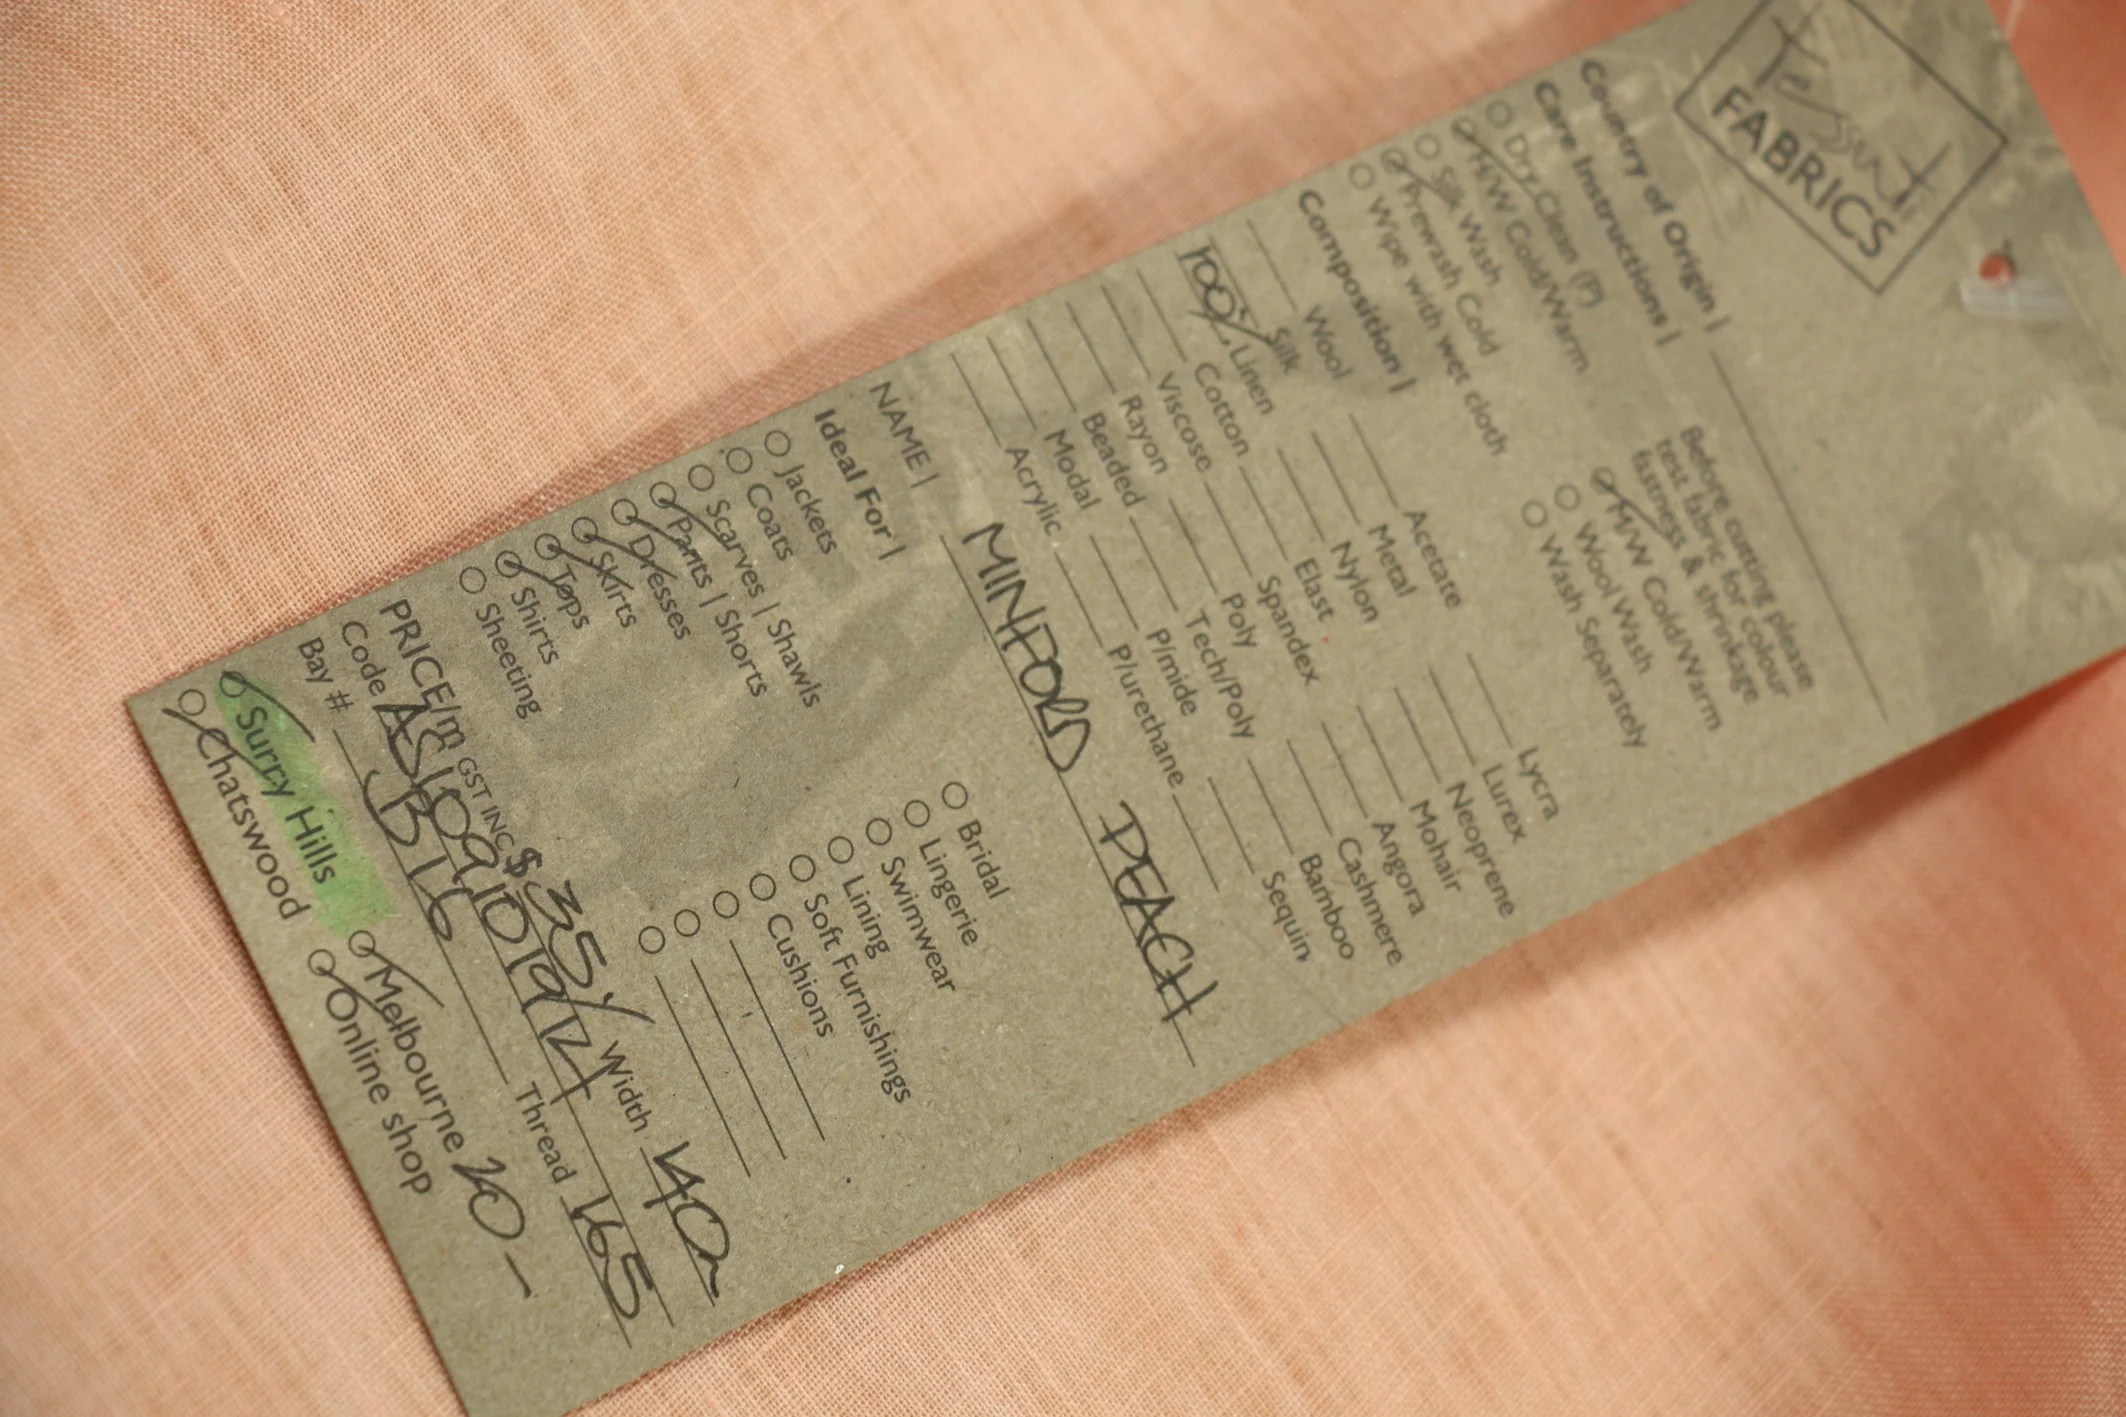 Tessuti
FABRICS
Country of Origin |
Care Instructions |
Dry Clean (P)
H/W Cold/Warm
Silk Wash
Prewash Cold
Wipe with wet cloth
Before cutting please
test fabric for colour
fastness & shrinkage
M/W Cold/Warm
Wool Wash
Wash Separately
Composition |
Wool Acetate Lycra
Silk Metal Lurex
100% Linen Nylon Neoprene
Cotton Elast Mohair
Viscose Spandex Angora
Rayon Poly Cashmere
Beaded Tech/Poly Bamboo
Modal P/mide Sequin
Acrylic P/urethane
NAME | MINFORD PEACH
Ideal For |
Jackets Bridal
Coats Lingerie
Scarves | Shawls Swimwear
Pants | Shorts Lining
Dresses Soft Furnishings
Skirts Cushions
Tops
Shirts
Sheeting
PRICE/m GST INC $35 Width 140
Code
Bay # B16 Thread 165
Surry Hills Melbourne 20 -
Chatswood Online shop